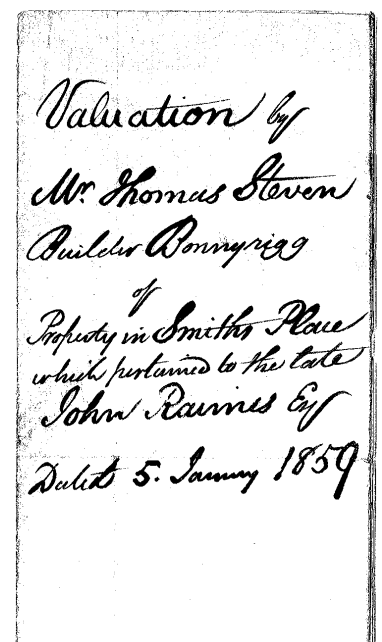 Valuation by
Mr. Thomas Steven
Builder Bonnyrigg
of
Property in Smiths Place
which pertained to the late
John Raimes Esq
Dated 5. January 1859